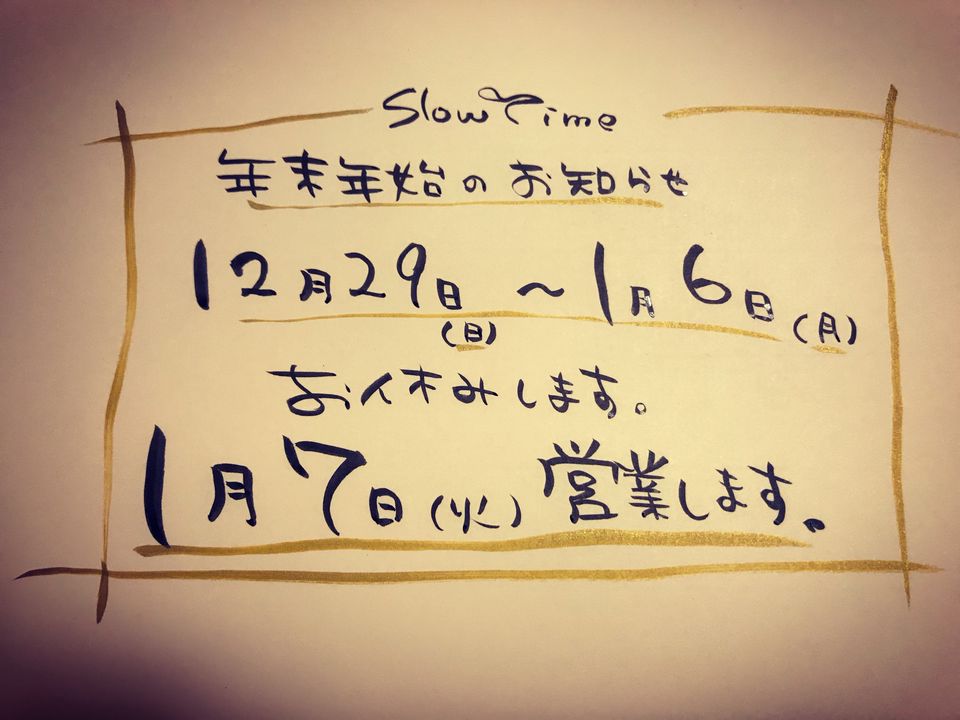 Slow Time
年末年始のお知らせ
12月29日(日)～1月6日(月)
お休みします。
1月7日(火)営業します。